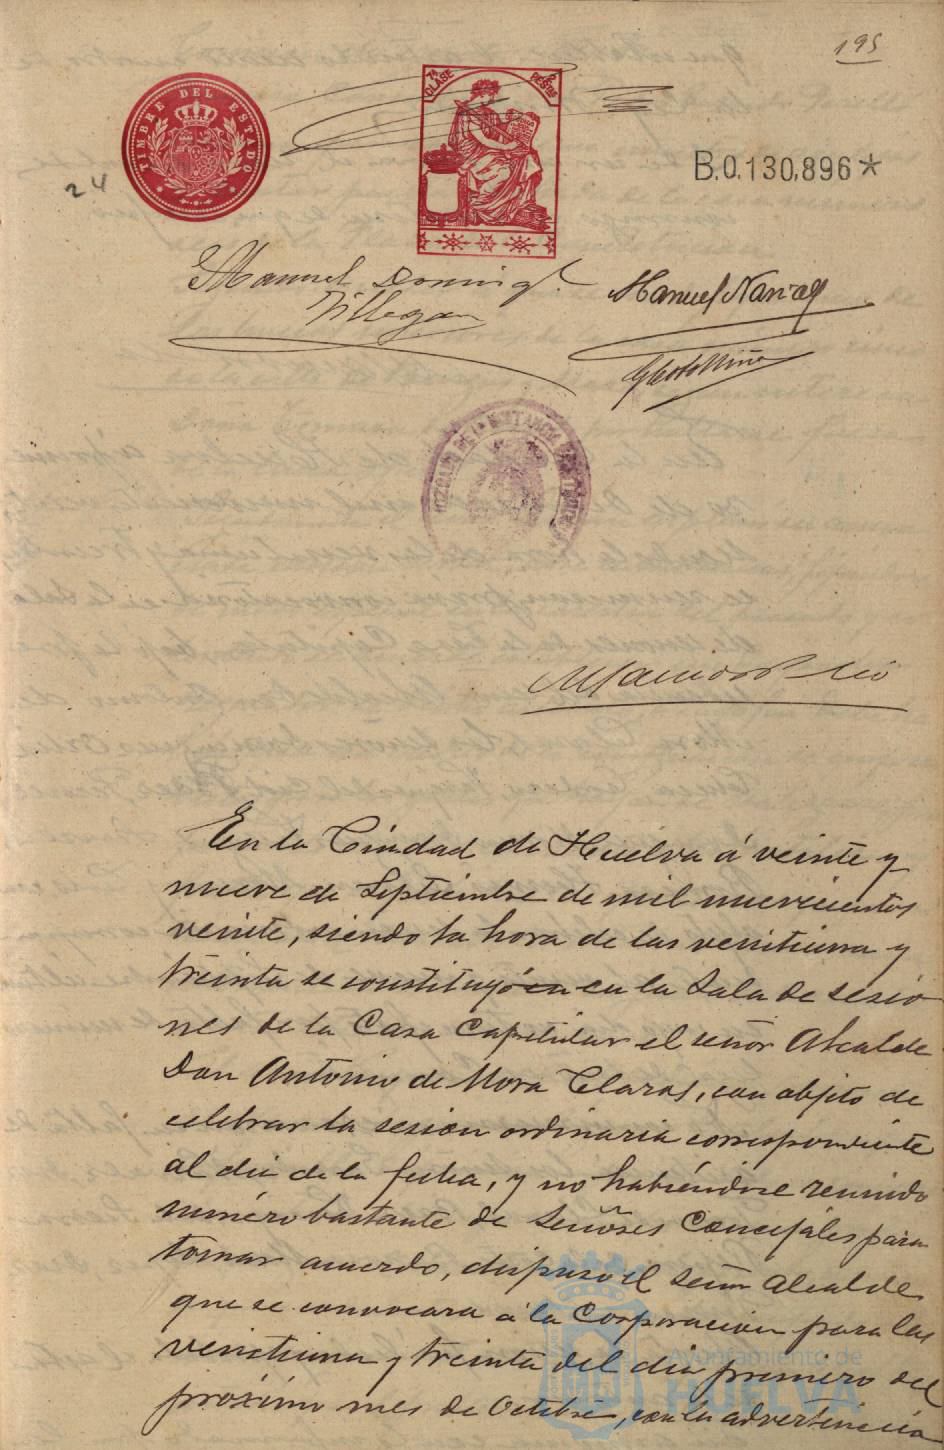 195
TIMBRE DEL ESTADO
7ª CLASE 2 PESETAS
B.0.130,896*
24
Manuel Doming
Villegas
Manuel Narvaez
JUZGADO DE 1ª INSTANCIA
En la Ciudad de Huelva á veinte y
nueve de Septiembre de mil nuevecientos
veinte, siendo la hora de las veintiuna y
treinta se constituyó en la Sala de sesio
nes de la Casa Capitular el señor Alcalde
Don Antonio de Mora Claros, con objeto de
celebrar la sesion ordinaria correspondiente
al dia de la fecha, y no habiéndose reunido
número bastante de Señores Concejales para
tomar acuerdo, dispuso el Señor Alcalde
que se convocara á la Corporacion para las
veintiuna y treinta del dia primero del
próximo mes de Octubre, con la advertencia
Ayuntamiento de
HUELVA